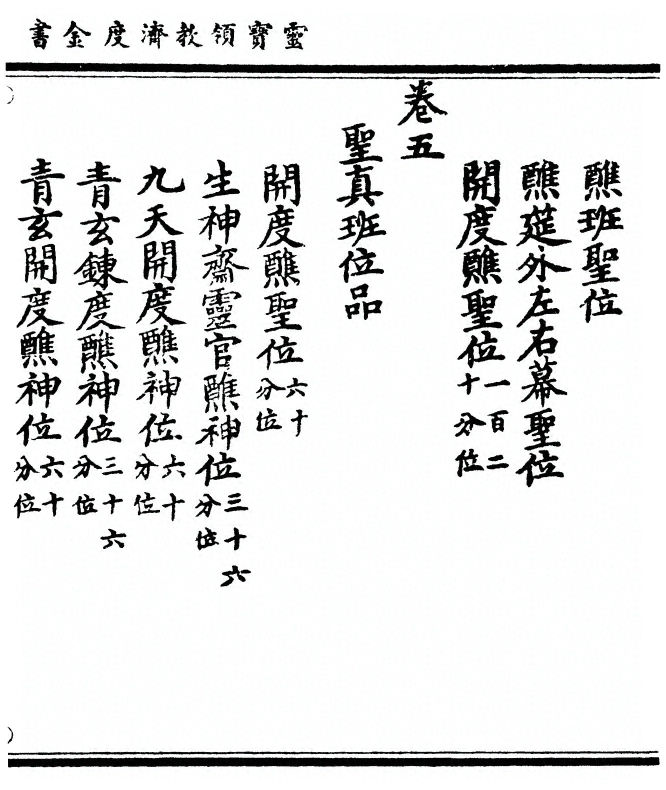 靈寶領教濟度金書
醮班聖位
醮筵外左右幕聖位
開度醮聖位一百二十分位
卷五
聖真班位品
開度醮聖位六十分位
生神齋靈官醮神位三十六分位
九天開度醮神位六十分位
青玄鍊度醮神位三十六分位
青玄開度醮神位六十分位